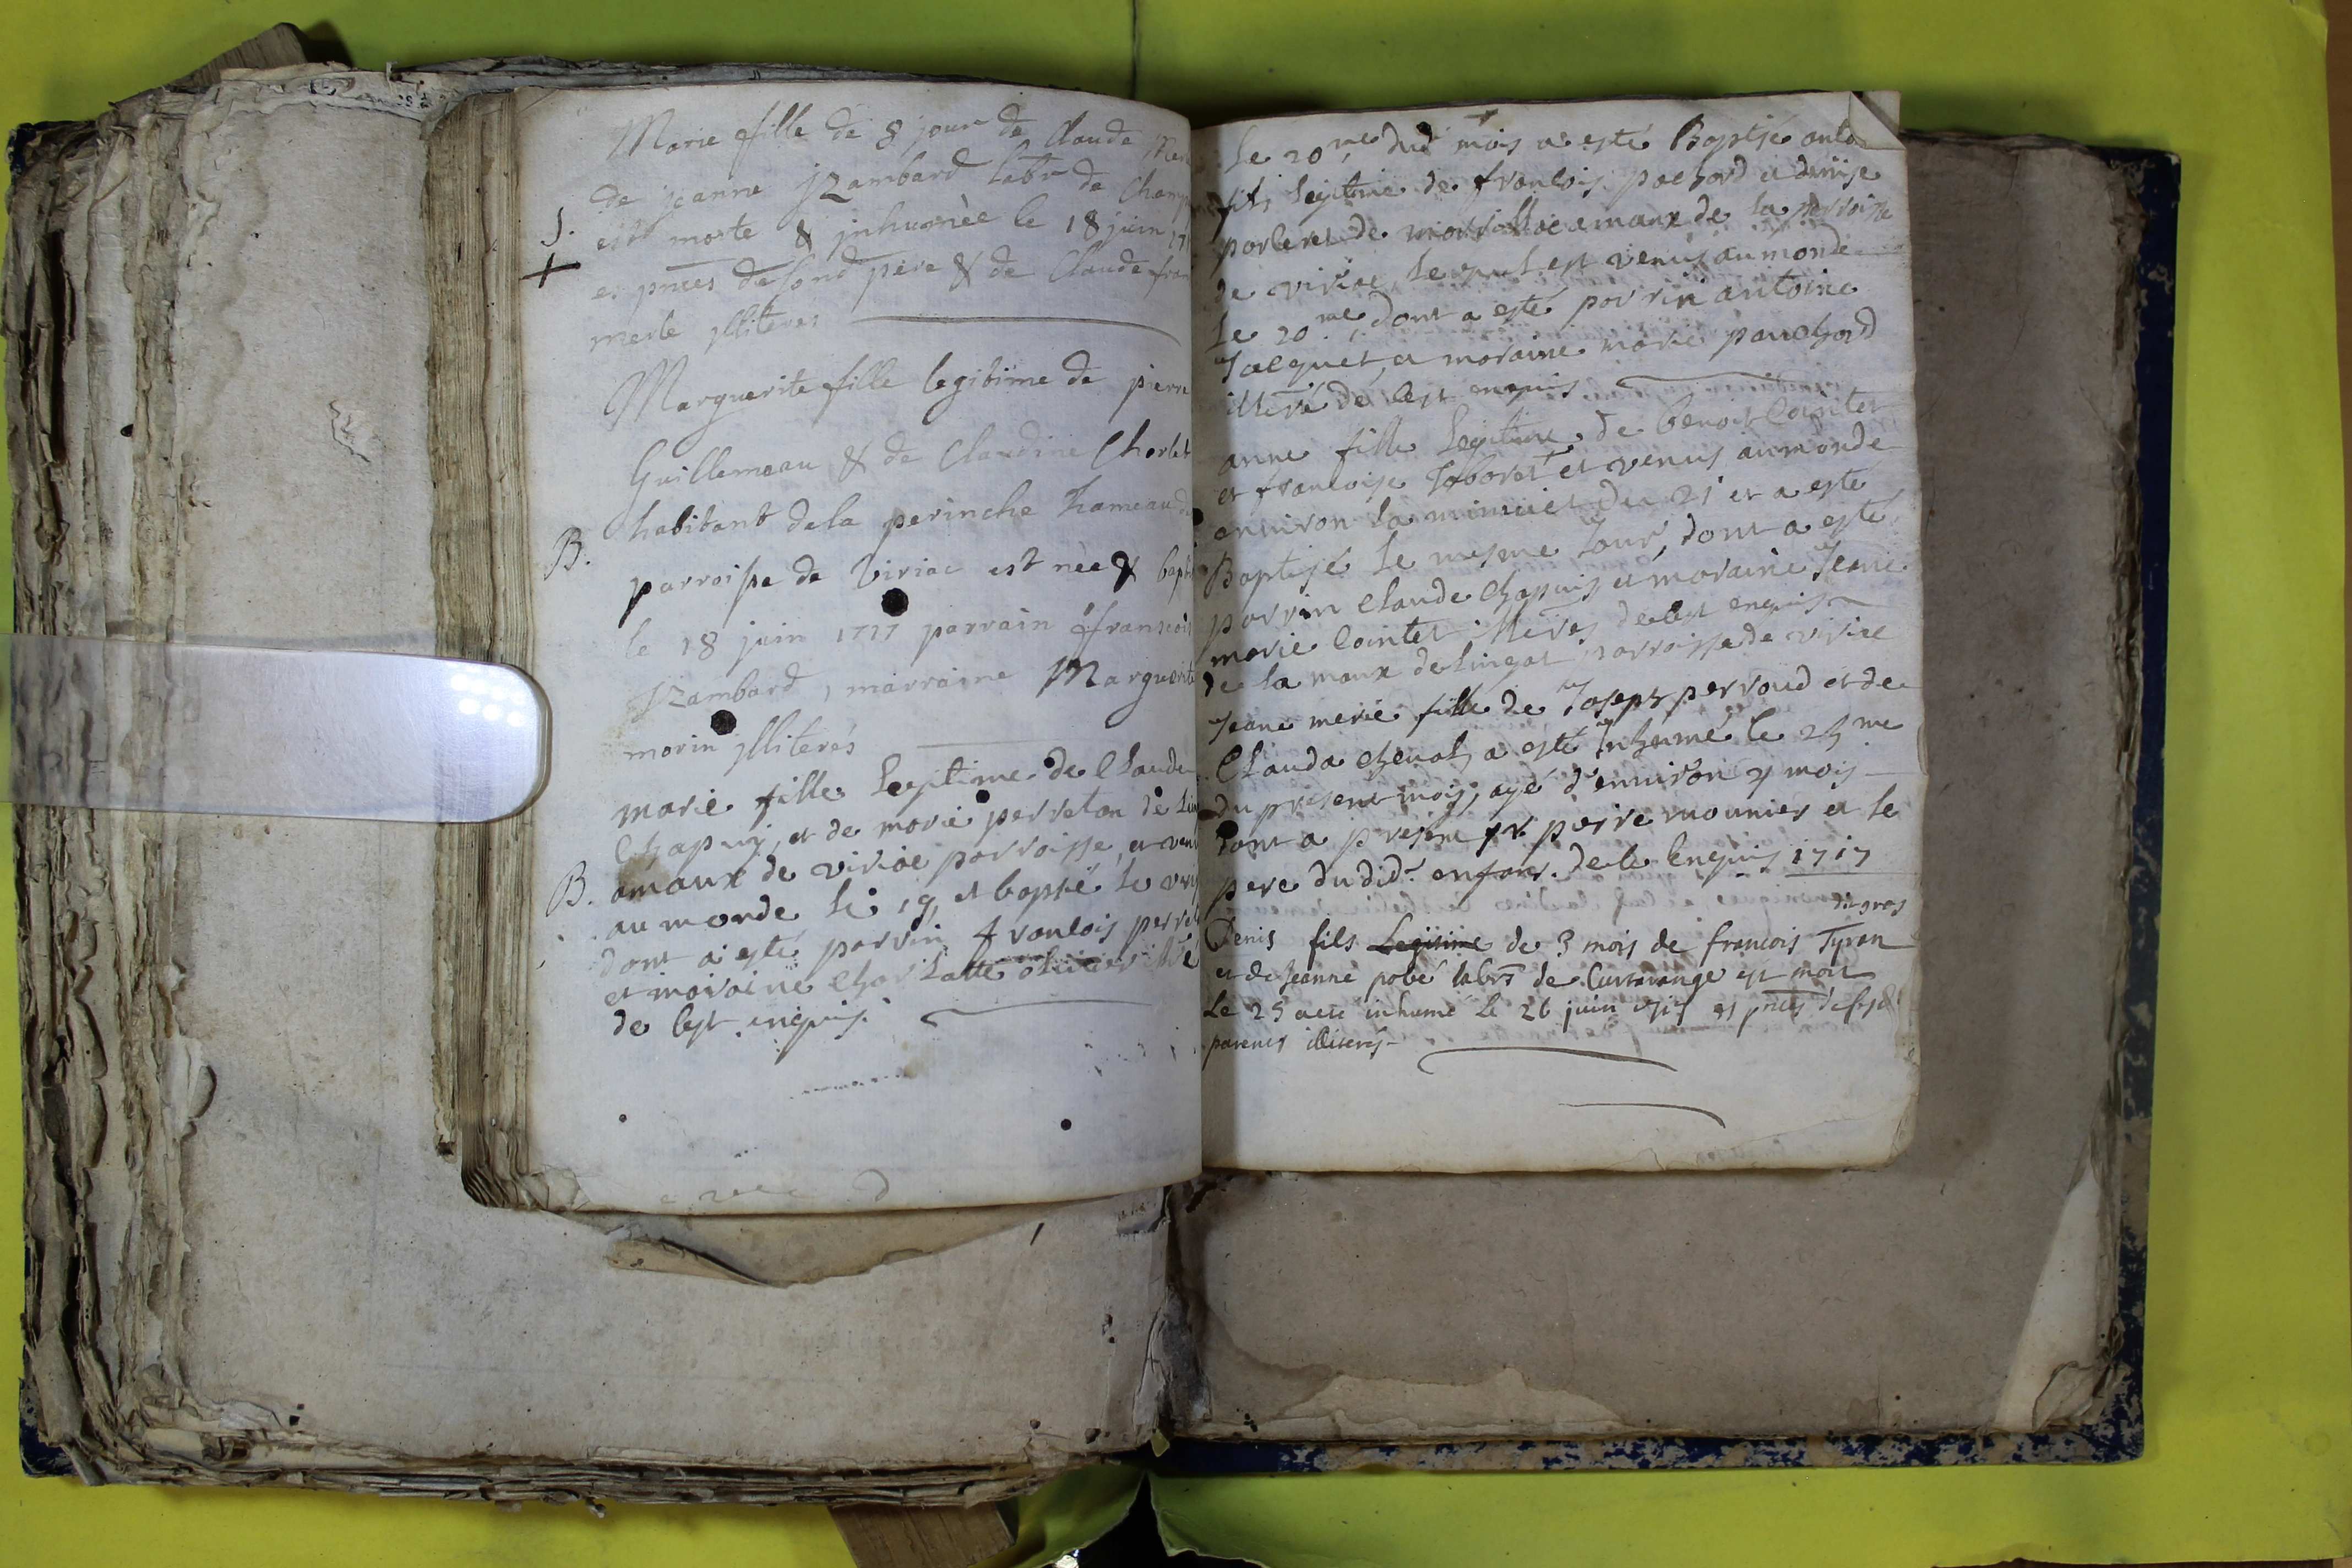 Marie fille de 8 jour de Claude Mer
de jeanne jzambard labr de Champ
S. est morte & jnhumée le 18 juin 17
+ es pnces desond pere & de Claude fran
merle jlliteres
Marguerite fille legitime de pierre
Guillemeau & de Claudine Chorlet
habitant dela perinche hameau de
B. parroisse de Viriac est née & bapti
le 18 juin 1717 parrain ffransois
Jzambard, marraine Marguerite
morin jlliterés
marie fille Legitime de Claude
Chapuy, et de marie perreton de
B. amaux de viriae parroisse, et venu
au monde le 19, et baptisé le
dont a esté parrin francois perret
et moraine Charlatte
de lest enquis
Le 20me dud mois a esté Baptisé anto
fils Legitime de francois pachord et denise
porteret de amaux de la parroisse
de viriae, Le quel est venus au monde
Le 20me, dont a esté parrin antoine
Jacquet, et moraine marie pauchord
illiteré de lest enquis
anne fille Legitime de benoit Cointet
et francoise Taboret et venus au monde
anviron la minuiet du 21 et a esté
Baptisé le mesme Jour, dont a esté
parrin Claude Chapuis et moraine Jeane
marie Cointet de lest enquis
de la maux de Lingat parroisse de viriae
Jeane merie fille de Joseph perroud et de
Clauda a esté Inhumé le me
du present mois, agé d'environ mois
dont a present pierre mounier et le
pere dudid. enfant. de le Enquis 1717
dit gros
Denis fils Legitime de 3 mois de francois Tyran
et de Jeanne pobé labrs de est mort
Le 25 a eté inhumé le 26 juin 1717 es pnces de sesd
parents illiterés